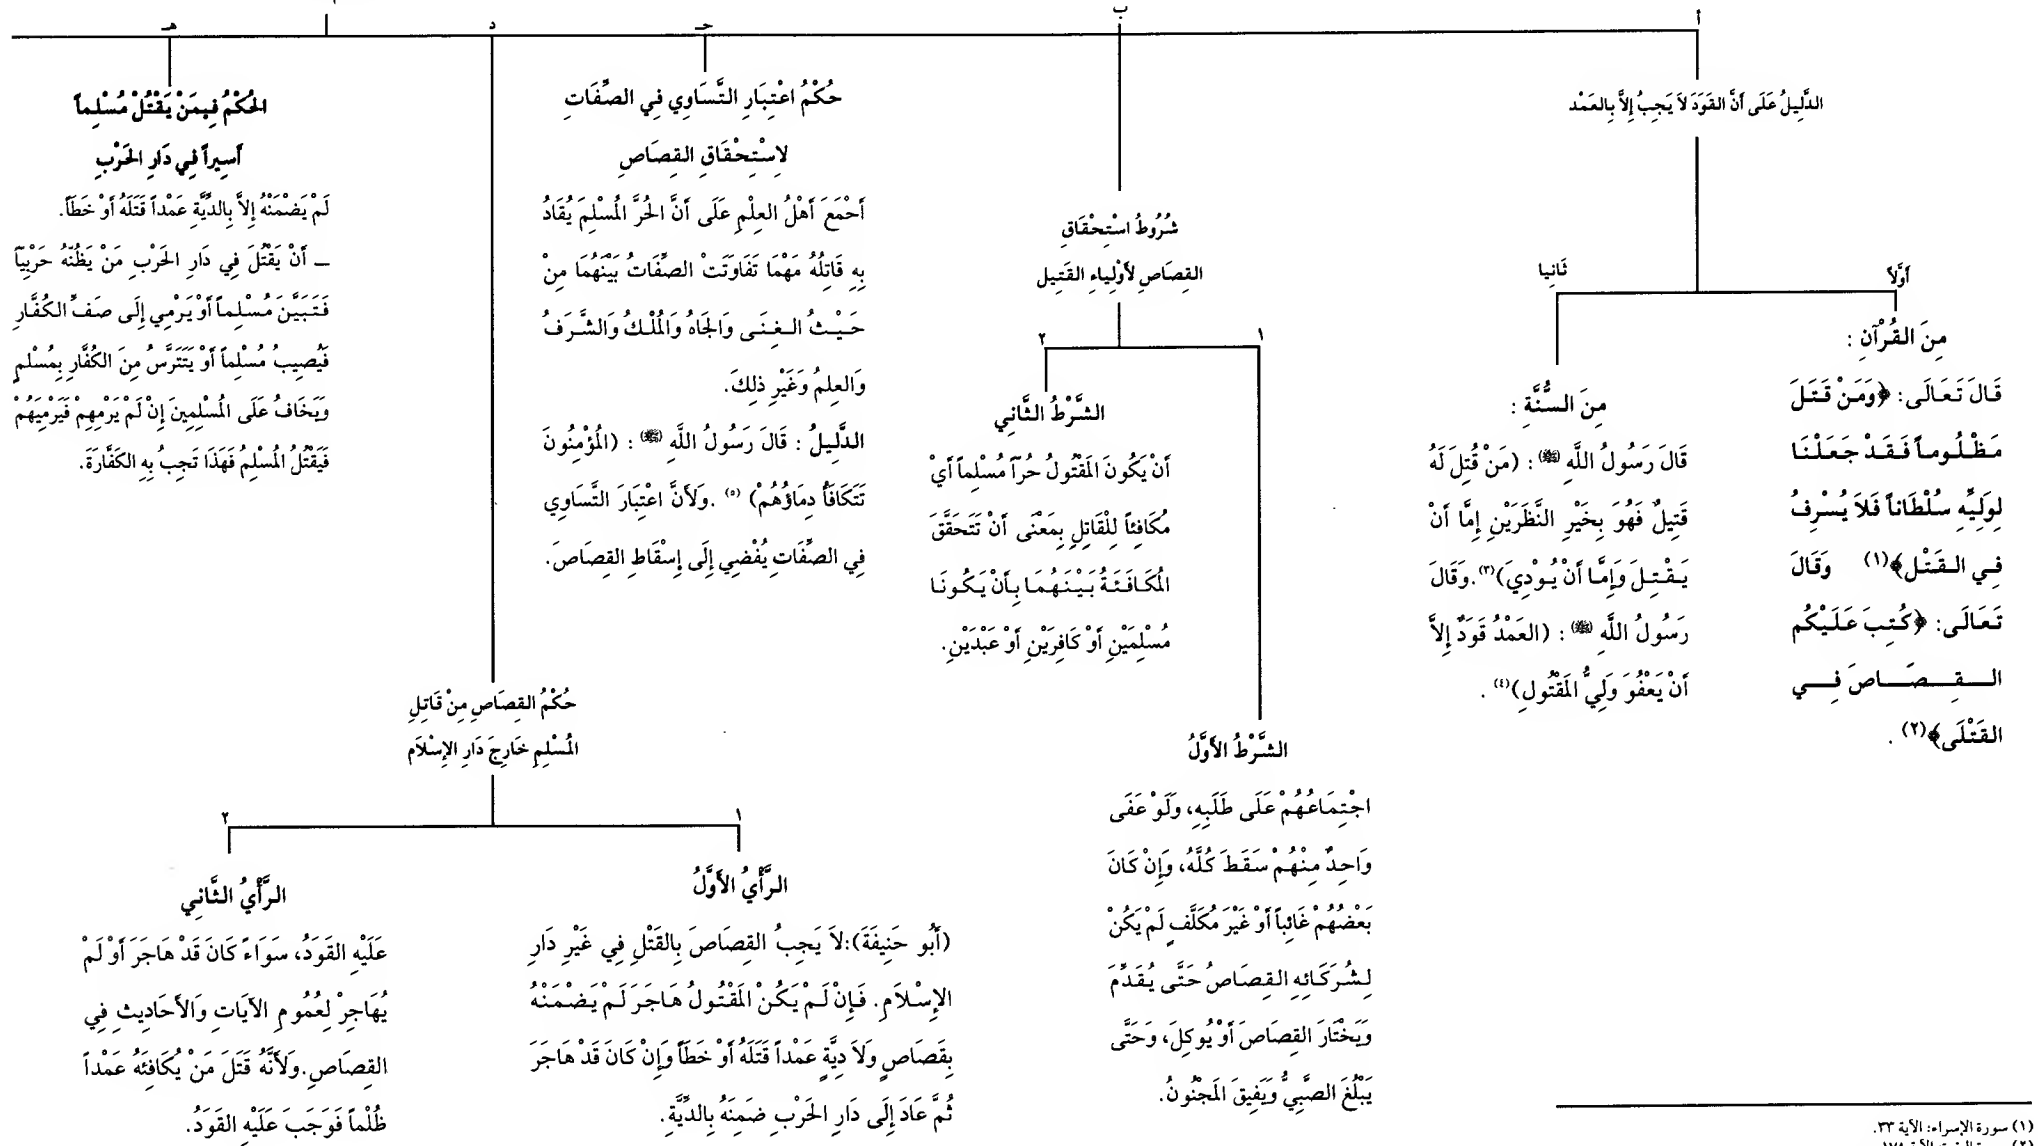 أ
الدَّلِيلُ عَلَى أَنَّ القَوَدَ لاَ يَجِبُ إِلاَّ بِالعَمْد
أَوَّلاً
مِنَ القُرْآنِ :
قَالَ تَعَالَى: ﴿وَمَنْ قَتَلَ
مَظْلُوماً فَقَدْ جَعَلْنَا
لِوَلِيِّهِ سُلْطَاناً فَلاَ يُسْرِفُ
فِي القَتْلِ﴾(١) وَقَالَ
تَعَالَى: ﴿كُتِبَ عَلَيْكُم
القِصَاصَ فِي
القَتْلَى﴾(٢) .
ثَانِيا
مِنَ السُّنَّةِ :
قَالَ رَسُولُ اللَّهِ (ﷺ) : (مَنْ قُتِلَ لَهُ
قَتِيلٌ فَهُوَ بِخَيْرِ النَّظَرَيْنِ إِمَّا أَنْ
يَقْتِلَ وَإِمَّا أَنْ يُوْدِيَ)(٣).وَقَالَ
رَسُولُ اللَّهِ (ﷺ) : (العَمْدُ قَوَدٌ إِلاَّ
أَنْ يَعْفُوَ وَلِيُّ المَقْتُولِ)(٤) .
ب
شُرُوطُ اسْتِحْقَاقِ
القِصَاصِ لأَوْلِيَاءِ القَتِيل
١
الشَّرْطُ الأَوَّلُ
اجْتِمَاعُهُمْ عَلَى طَلَبِهِ، وَلَوْ عَفَى
وَاحِدٌ مِنْهُمْ سَقَطَ كُلَّهُ، وَإِنْ كَانَ
بَعْضُهُمْ غَائِباً أَوْ غَيْرَ مُكَلَّفٍ لَمْ يَكُنْ
لِشُرَكَائِهِ القِصَاصُ حَتَّى يُقَدِّمَ
وَيَخْتَارَ القِصَاصَ أَوْ يُوكِلَ، وَحَتَّى
يَبْلُغَ الصَّبِيُّ وَيَفِيقَ المَجْنُونُ.
٢
الشَّرْطُ الثَّانِي
أَنْ يَكُونَ المَقْتُولُ حُرّاً مُسْلِماً أَيْ
مُكَافِئاً لِلْقَاتِلِ بِمَعْنَى أَنْ تَتَحَقَّقَ
المُكَافَئَةُ بَيْنَهُمَا بِأَنْ يَكُونَا
مُسْلِمَيْنِ أَوْ كَافِرَيْنِ أَوْ عَبْدَيْنِ.
حـ
حُكْمُ اعْتِبَارِ التَّسَاوِي فِي الصِّفَاتِ
لاِسْتِحْقَاقِ القِصَاصِ
أَحْمَعَ أَهْلُ العِلْمِ عَلَى أَنَّ الحُرَّ المُسْلِمَ يُقَادُ
بِهِ قَاتِلُهُ مَهْمَا تَفَاوَتَتْ الصِّفَاتُ بَيْنَهُمَا مِنْ
حَيْثُ الغِنَى وَالجَاهُ وَالمُلْكُ وَالشَّرَفُ
وَالعِلمُ وَغَيْرِ ذلِكَ.
الدَّلِيلُ : قَالَ رَسُولُ اللَّهِ (ﷺ) : (المُؤْمِنُونَ
تَتَكَافَأُ دِمَاؤُهُمْ) (٥) .وَلأَنَّ اعْتِبَارَ التَّسَاوِي
فِي الصِّفَاتِ يُفْضِي إِلَى إِسْقَاطِ القِصَاصَ.
د
حُكْمُ القِصَاصِ مِنْ قَاتِلِ
المُسْلِمِ خَارِجَ دَارِ الإِسْلاَم
١
الرَّأْيُ الأَوَّلُ
(أَبُو حَنِيفَةَ):لاَ يَجِبُ القِصَاصَ بِالقَتْلِ فِي غَيْرِ دَارِ
الإِسْلاَمِ. فَإِنْ لَمْ يَكُنْ المَقْتُولُ هَاجَرَ لَمْ يَضْمَنْهُ
بِقَصَاصٍ وَلاَ دِيَّةٍ عَمْداً قَتَلَهُ أَوْ خَطَأً وَإِنْ كَانَ قَدْ هَاجَرَ
ثُمَّ عَادَ إِلَى دَارِ الحَرْبِ ضَمِنَهُ بِالدِّيَّةِ.
٢
الرَّأْيُ الثَّانِي
عَلَيْهِ القَوَدُ، سَوَاءً كَانَ قَدْ هَاجَرَ أَوْ لَمْ
يُهَاجِرْ لِعُمُومِ الآيَاتِ وَالأَحَادِيثِ فِي
القِصَاصِ.وَلأَنَّهُ قَتَلَ مَنْ يُكَافِئَهُ عَمْداً
ظُلْماً فَوَجَبَ عَلَيْهِ القَوَدُ.
هـ
الحُكْمُ فِيمَنْ يَقْتُلْ مُسْلِماً
أَسِيراً فِي دَارِ الحَرْبِ
لَمْ يَضْمَنْهُ إِلاَّ بِالدِّيَّةِ عَمْداً قَتَلَهُ أَوْ خَطَأً.
ــ أَنْ يَقْتُلَ فِي دَارِ الحَرْبِ مَنْ يَظُنّهُ حَرْبِيّاً
فَتَبَيَّنَ مُسْلِماً أَوْ يَرْمِي إِلَى صَفِّ الكُفَّارِ
فَيُصِيبُ مُسْلِماً أَوْ يَتَتَرَّسُ مِنَ الكُفَّارِ بِمُسْلِمٍ
وَيَخَافُ عَلَى المُسْلِمِينَ إِنْ لَمْ يَرْمِهِمْ فَيَرْمِيَهُمْ
فَيَقْتُلُ المُسْلِمُ فَهَذَا تَجِبُ بِهِ الكَفَّارَةَ.
(١) سورة الإسراء: الآية ٣٣.